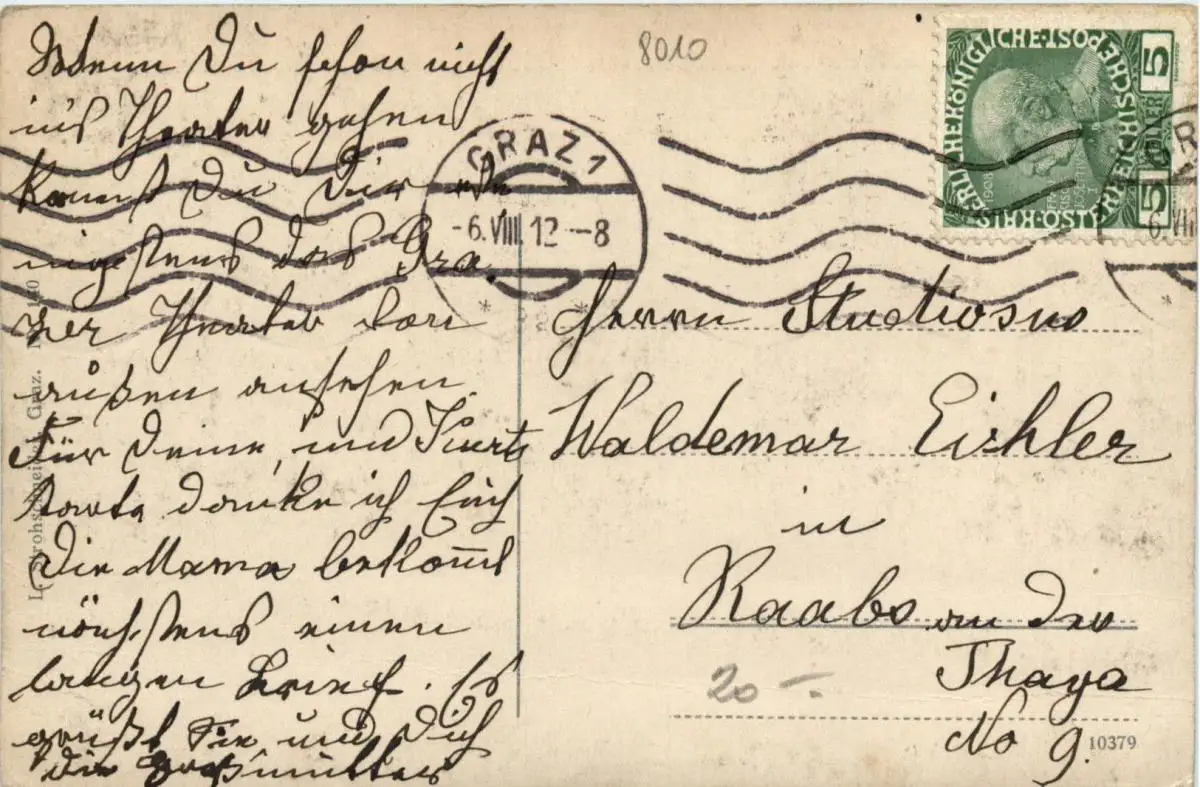 Wenn Du schon nicht
ins Theater gehen
kannst Du Dir we
nigstens das Gra
zer Theater von
außen ansehen.
Für Deine, und Kurts
Karte danke ich Euch
Die Mama bekom̅t
nächstens einen
langen Brief. Es
grüßt Sie und Dich
die Großmutter
8010
GRAZ 1
-6.VIII.12--8
KAISERLICHE KÖNIGLICHE ÖSTERREICHISCHE POST
5 HELLER 5
Herrn Studiosus
Waldemar Eichler
in
Raabs an der
Thaya
No 9.
20 -
10379
Strohschneider, Graz.